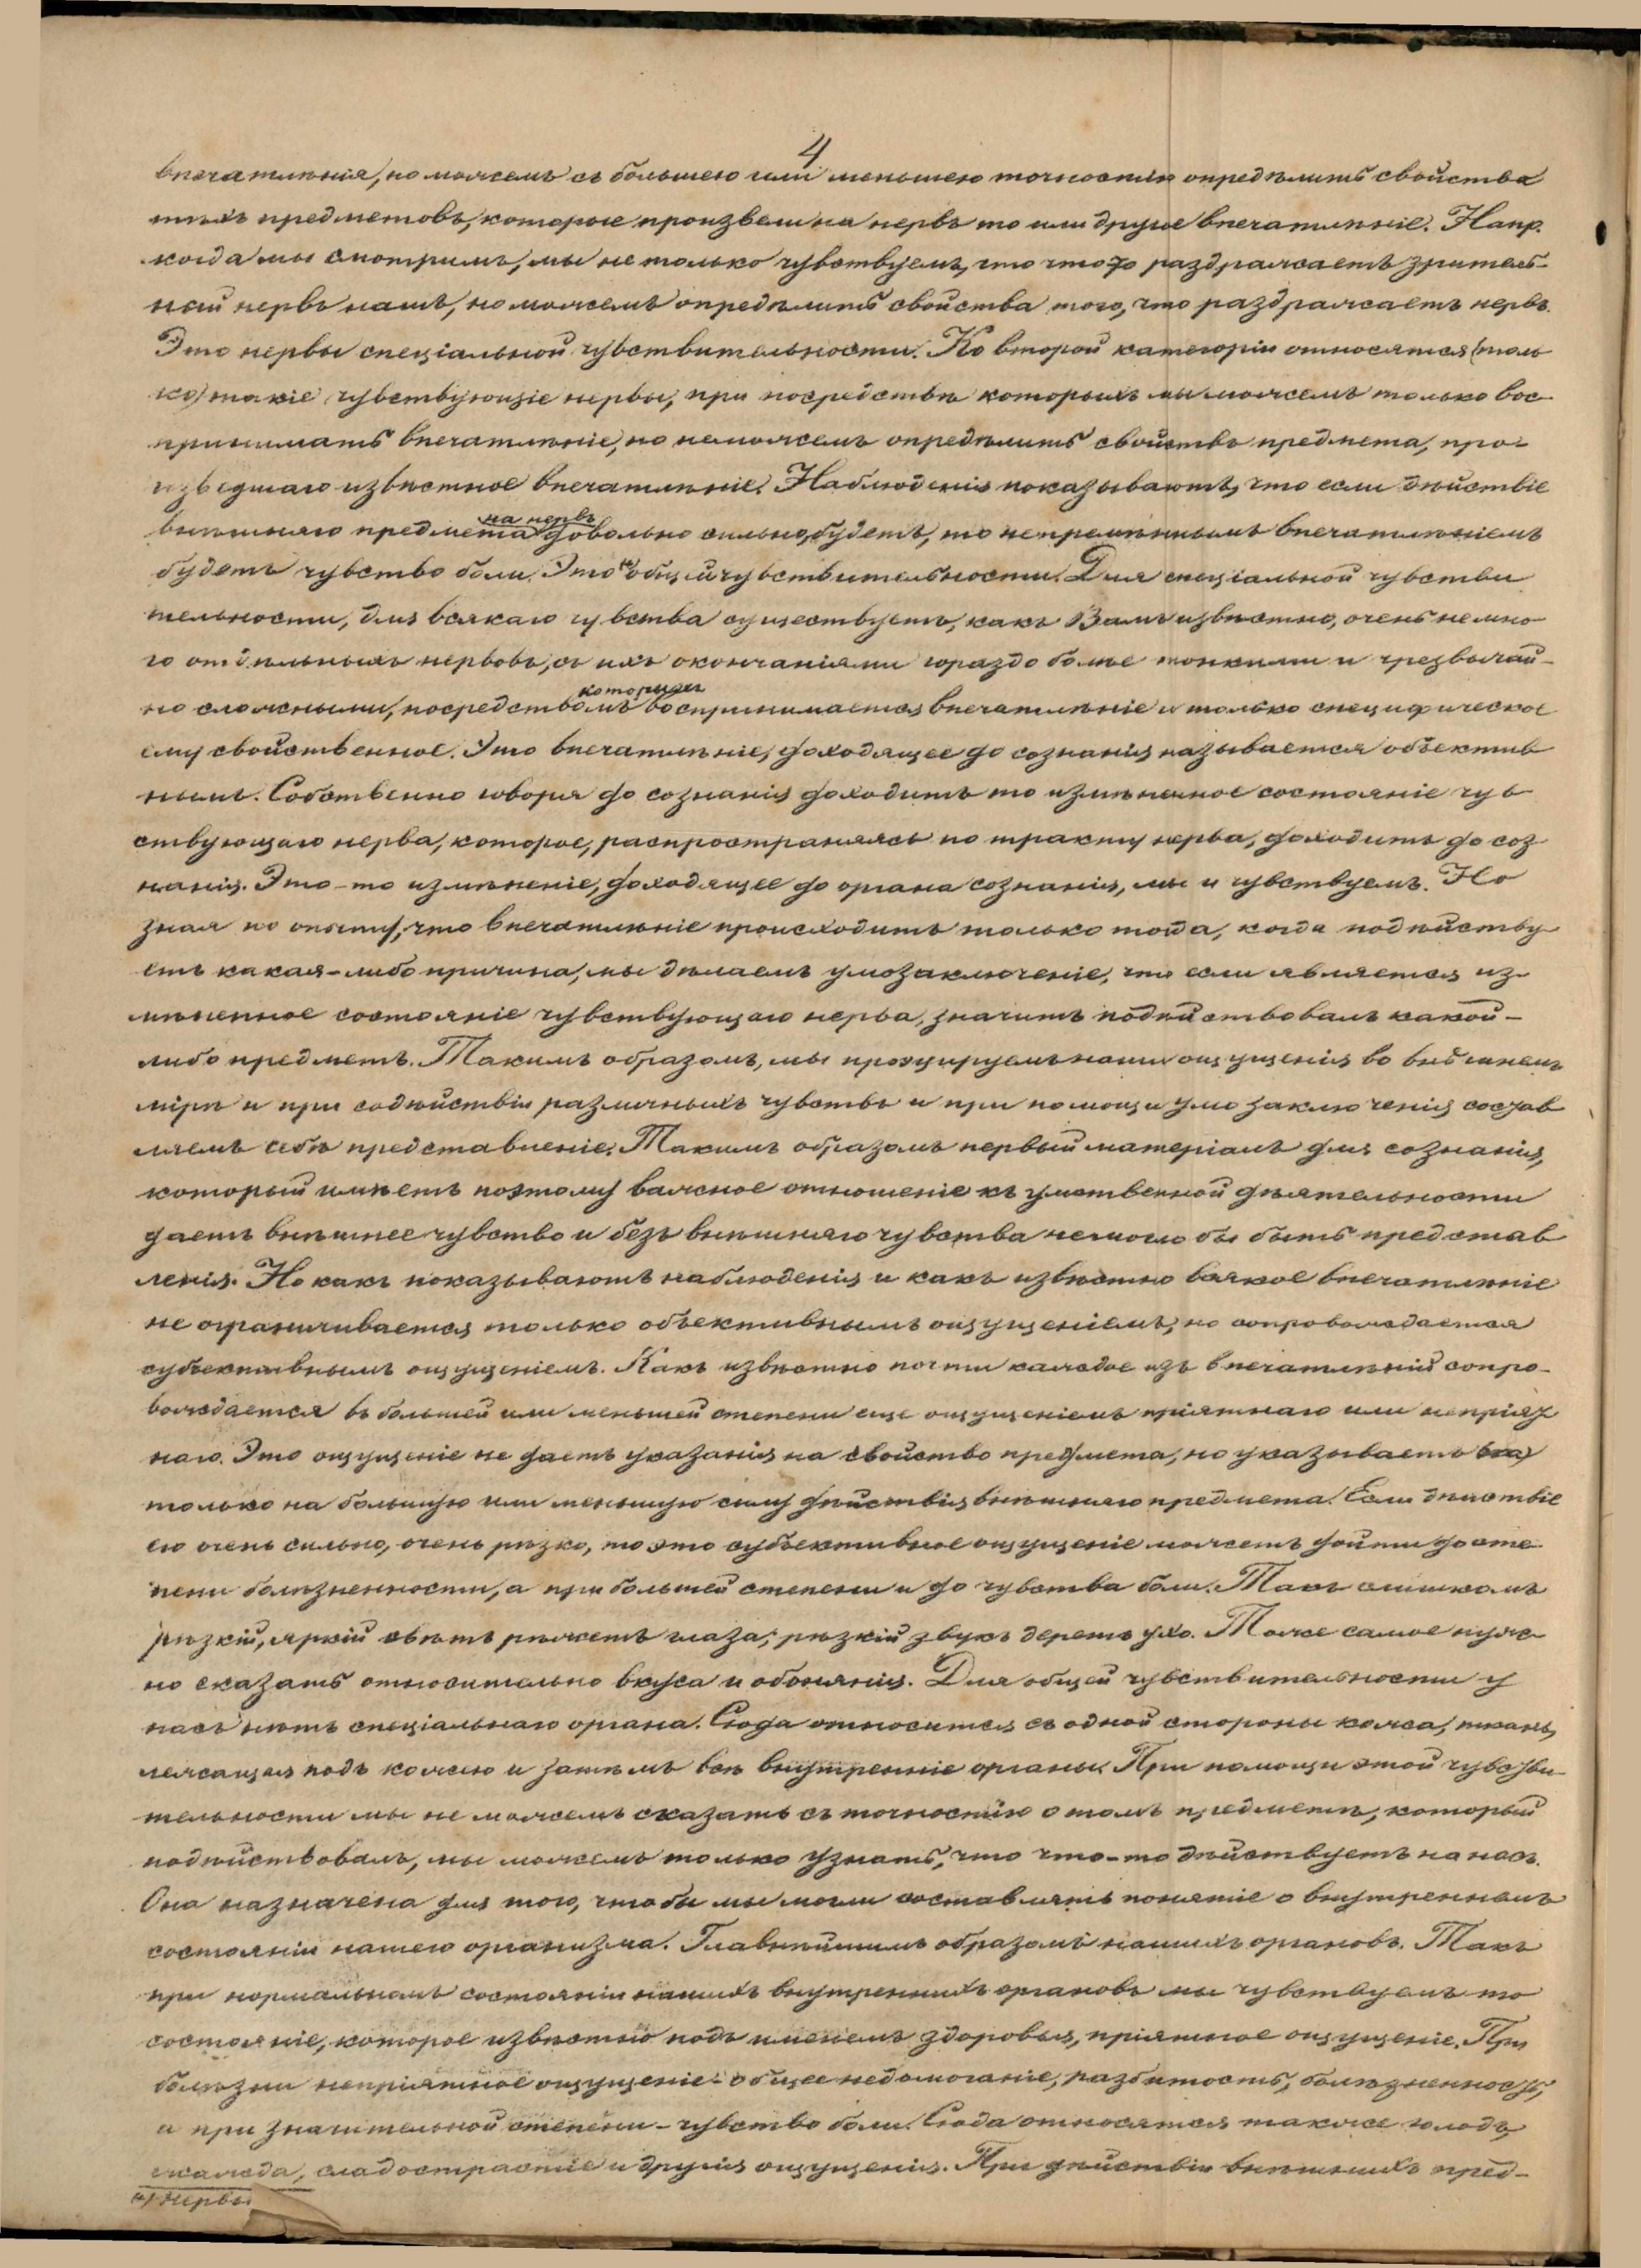 4
впечатлѣнія, но можемъ съ большею или меньшею точностію опредѣлить свойства
тѣхъ предметовъ, которые произвели на нервъ то или другое впечатлѣніе. Напр.
когда мы смотримъ, мы не только чувствуемъ, что что то раздражаетъ зритель-
ный нервъ нашъ, но можемъ опредѣлить свойства того, что раздражаетъ нервъ.
Это нервы спеціальной чувствительности. Ко второй категоріи относятся (толь
ко) такіе чувствующіе нервы, при посредствѣ которыхъ мы можемъ только вос-
принимать впечатлѣніе, но неможемъ опредѣлить свойство предмета, про-
изведшаго извѣстное впечатлѣніе. Наблюденія показываютъ, что если дѣйствіе
на нервъ
внѣшняго предмета довольно сильно будетъ, то непремѣннымъ впечатлѣніемъ
будетъ чувство боли. Это общей чувствительности. Для спеціальной чувстви
тельности, для всякаго чувства существуетъ, какъ Вамъ извѣстно, очень немно
го отдѣльныхъ нервовъ, съ ихъ окончаніями гораздо болѣе тонкими и чрезвычай-
которыхъ
но сложными, посредствомъ воспринимается впечатлѣніе и только специфическое
ему свойственное. Это впечатлѣніе, доходящее до сознанія называется объектив
нымъ. Собственно говоря до сознанія доходитъ то измѣненное состояніе чув
ствующаго нерва, которое, распространяясь по тракту нерва, доходитъ до соз
нанія. Это-то измѣненіе, доходящее до органа сознанія, мы и чувствуемъ. Но
зная по опыту, что впечатлѣніе происходитъ только тогда, когда подѣйству
етъ какая-либо причина, мы дѣлаемъ умозаключеніе, что если является из-
мѣненное состояніе чувствующаго нерва, значитъ подѣйствовалъ какой-
либо предметъ. Такимъ образомъ, мы проэцируемъ наши ощущенія во внѣшнемъ
мірѣ и при содѣйствіи различныхъ чувствъ и при помощи умозаключенія состав
ляемъ себѣ представленіе. Такимъ образомъ первый матеріалъ для сознанія,
который имѣетъ поэтому важное отношеніе къ умственной дѣятельности
даетъ внѣшнее чувство и безъ внѣшняго чувства немогло бы быть представ
ленія. Но какъ показываютъ наблюденія и какъ извѣстно всякое впечатлѣніе
не ограничивается только объективнымъ ощущеніемъ, но сопровождается
субъективнымъ ощущеніемъ. Какъ извѣстно почти каждое изъ впечатлѣній сопро-
вождается въ большей или меньшей степени еще ощущеніемъ пріятнаго или непріят
наго. Это ощущеніе не даетъ указанія на свойство предмета, но указываетъ
только на большую или меньшую силу дѣйствія внѣшняго предмета. Если дѣйствіе
его очень сильно, очень рѣзко, то это субъективное ощущеніе можетъ дойти до сте
пени болѣзненности, а при большей степени и до чувства боли. Такъ слишкомъ
рѣзкій, яркій свѣтъ рѣжетъ глаза; рѣзкій звукъ деретъ ухо. Тоже самое нуж
но сказать относительно вкуса и обонянія. Для общей чувствительности у
насъ нѣтъ спеціальнаго органа. Сюда относится съ одной стороны кожа, ткань,
лежащая подъ кожею и затѣмъ всѣ внутренніе органы. При помощи этой чувстви-
тельности мы не можемъ сказать съ точностію о томъ предметѣ, который
подѣйствовалъ, мы можемъ только узнать, что что-то дѣйствуетъ на насъ.
Она назначена для того, чтобы мы могли составлять понятіе о внутреннемъ
состояніи нашего организма. Главнѣйшимъ образомъ нашихъ органовъ. Такъ
при нормальномъ состояніи нашихъ внутреннихъ органовъ мы чувствуемъ то
состояніе, которое извѣстно подъ именемъ здоровья, пріятное ощущеніе. При
болѣзни непріятное ощущеніе-общее недомоганіе, разбитость, болѣзненность,
а при значительной степени-чувство боли. Сюда относятся также голодъ,
жажда, сладострастіе и другія ощущенія. При дѣйствіи внѣшнихъ пред-
нервы